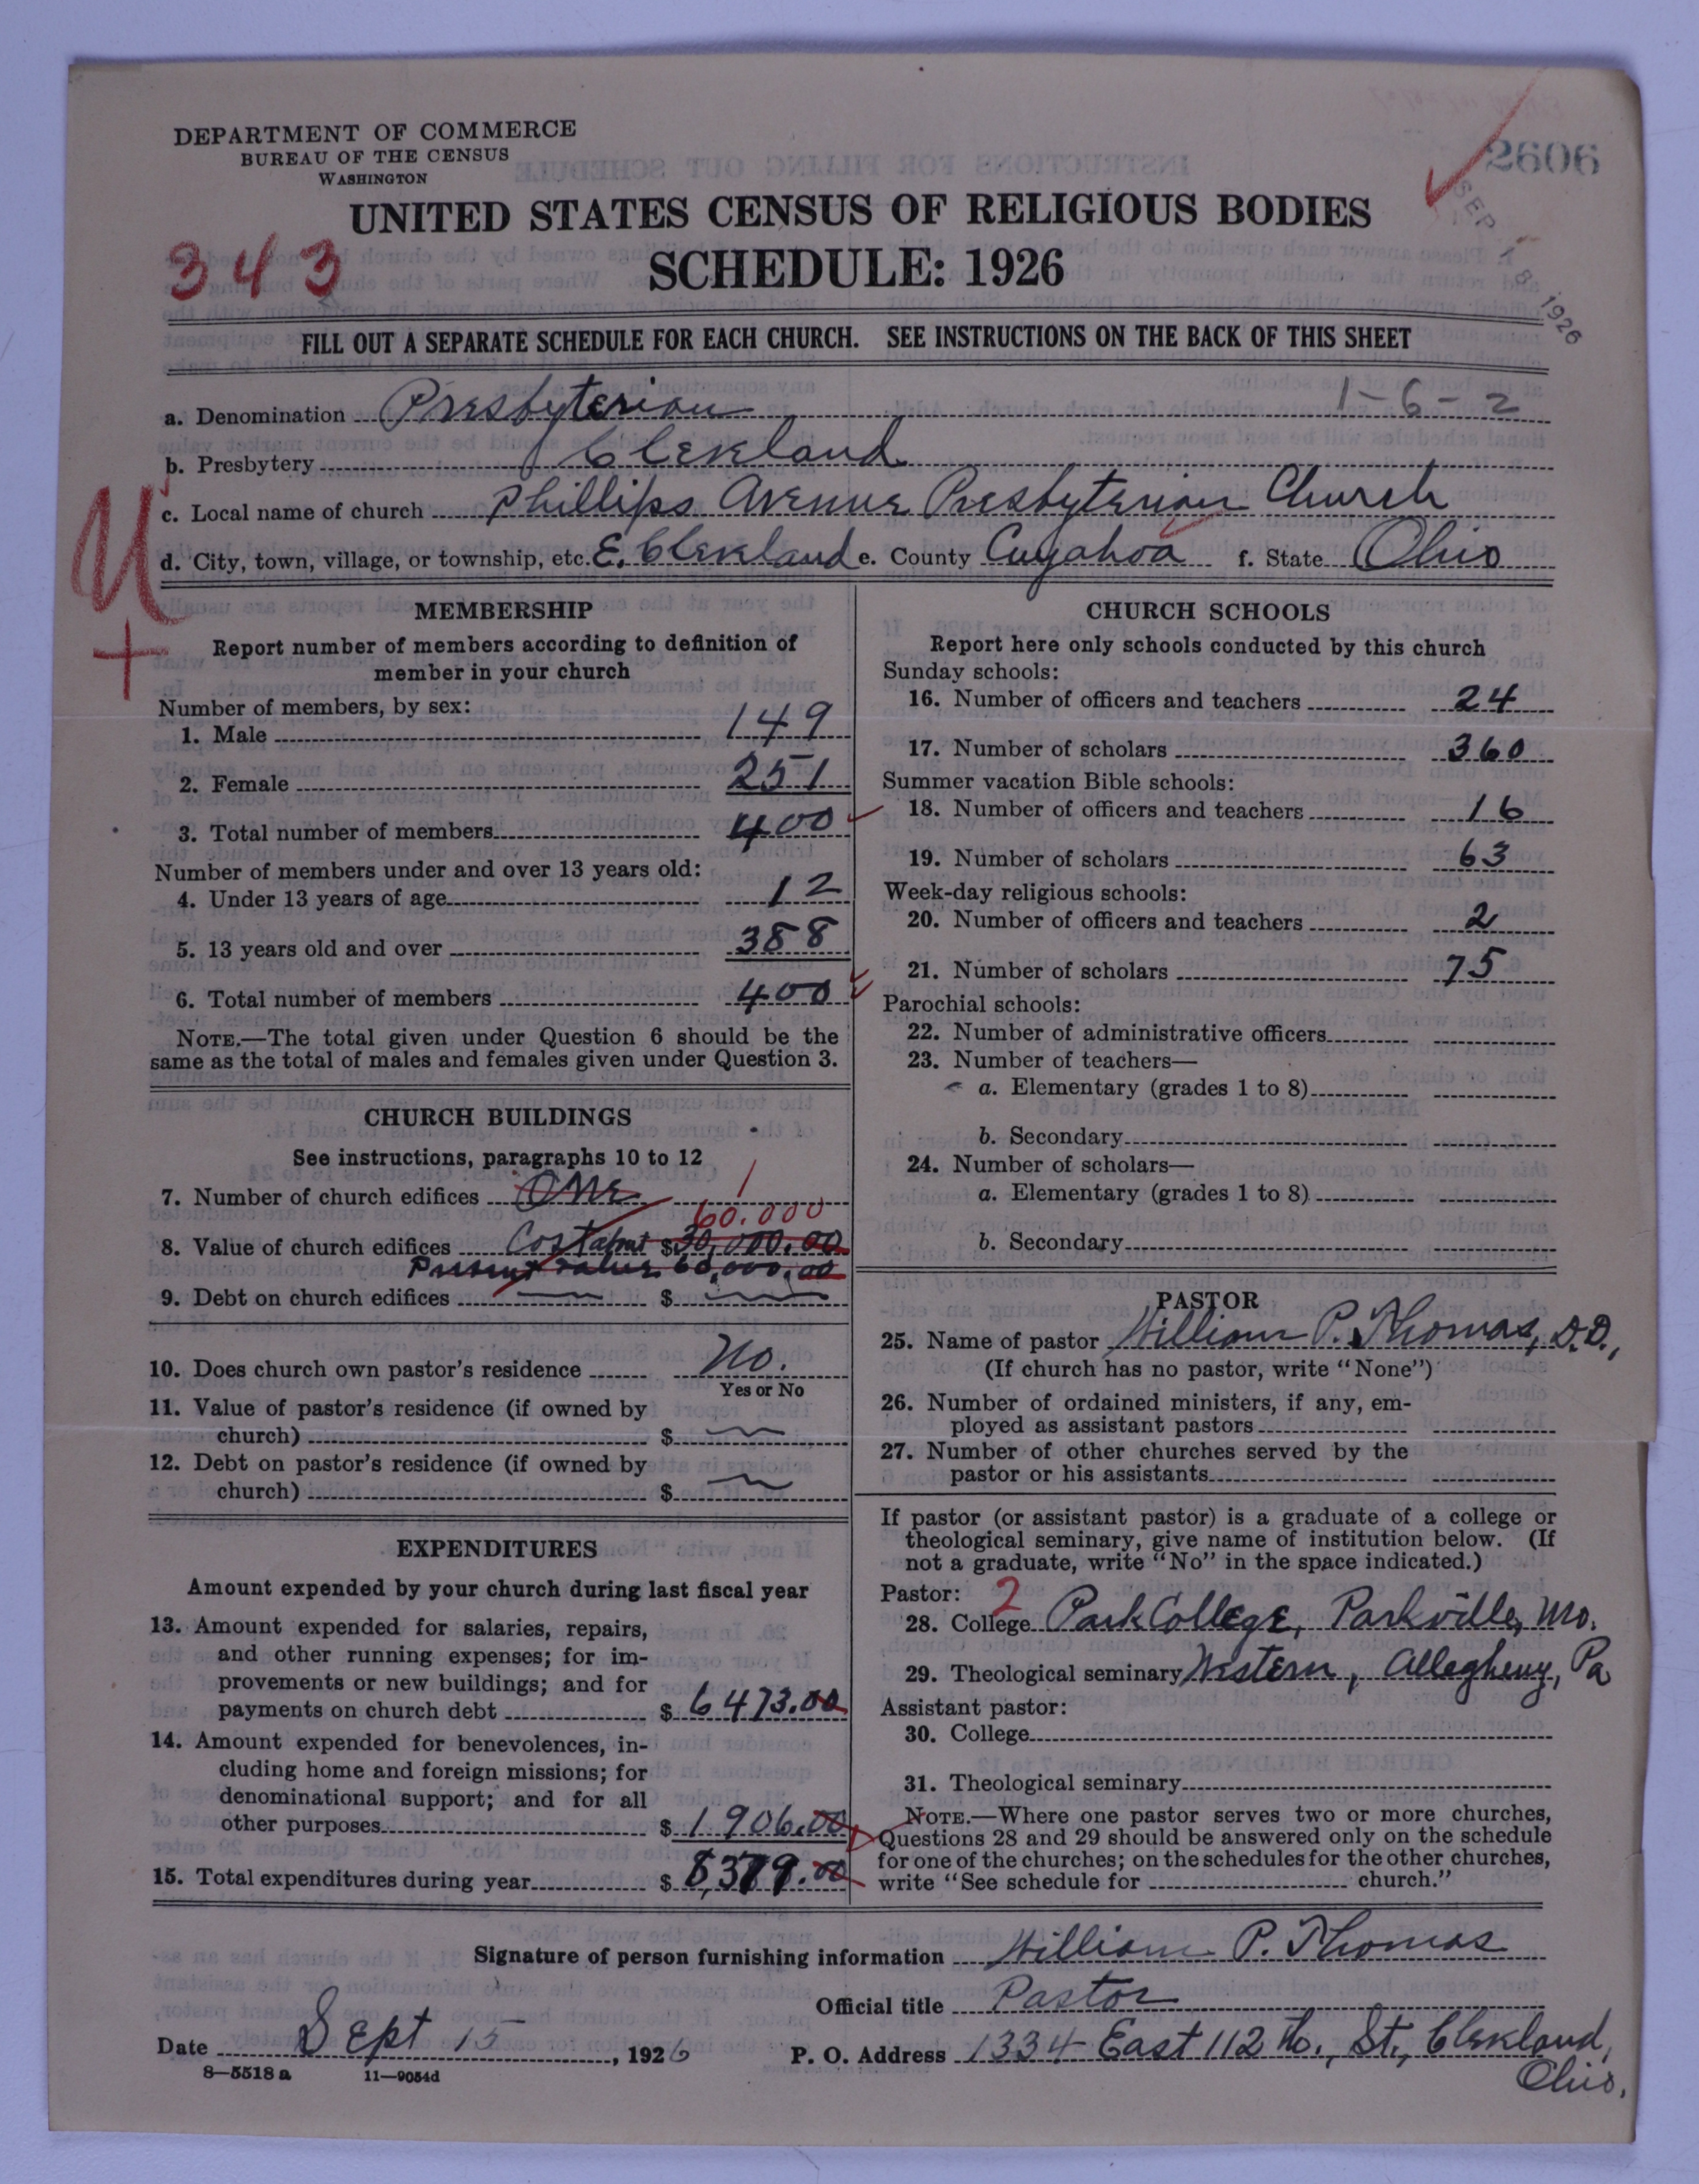 DEPARTMENT OF COMMERCE
BUREAU OF THE CENSUS
WASHINGTON
2606
SEP 18 1926
UNITED STATES CENSUS OF RELIGIOUS BODIES
343
SCHEDULE: 1926
FILL OUT A SEPARATE SCHEDULE FOR EACH CHURCH. SEE INSTRUCTIONS ON THE BACK OF THIS SHEET
a. Denomination Presbyterian 1-6-2
b. Presbytery Cleveland
c. Local name of church Phillips Avenue Presbyterian Church
d. City, town, village, or township, etc. E. Cleveland e. County Cuyahoa f. State Ohio
U
+
MEMBERSHIP
Report number of members according to definition of
member in your church
Number of members, by sex:
1. Male 149
2. Female 251
3. Total number of members 400
Number of members under and over 13 years old:
4. Under 13 years of age 12
5. 13 years old and over 388
6. Total number of members 400
NOTE.—The total given under Question 6 should be the
same as the total of males and females given under Question 3.
CHURCH BUILDINGS
See instructions, paragraphs 10 to 12
7. Number of church edifices One 1
60.000
8. Value of church edifices Cost about $30,000.00
Present value 60,000.00
9. Debt on church edifices $
10. Does church own pastor's residence No.
Yes or No
11. Value of pastor's residence (if owned by
church) $
12. Debt on pastor's residence (if owned by
church) $
EXPENDITURES
Amount expended by your church during last fiscal year
13. Amount expended for salaries, repairs,
and other running expenses; for im-
provements or new buildings; and for
payments on church debt $ 6473.00
14. Amount expended for benevolences, in-
cluding home and foreign missions; for
denominational support; and for all
other purposes $ 1906.00
15. Total expenditures during year $ 8,379.00
CHURCH SCHOOLS
Report here only schools conducted by this church
Sunday schools:
16. Number of officers and teachers 24
17. Number of scholars 360
Summer vacation Bible schools:
18. Number of officers and teachers 16
19. Number of scholars 63
Week-day religious schools:
20. Number of officers and teachers 2
21. Number of scholars 75
Parochial schools:
22. Number of administrative officers
23. Number of teachers—
a. Elementary (grades 1 to 8)
b. Secondary
24. Number of scholars—
a. Elementary (grades 1 to 8)
b. Secondary
PASTOR
25. Name of pastor William P. Thomas, D.D.,
(If church has no pastor, write "None")
26. Number of ordained ministers, if any, em-
ployed as assistant pastors
27. Number of other churches served by the
pastor or his assistants
If pastor (or assistant pastor) is a graduate of a college or
theological seminary, give name of institution below. (If
not a graduate, write "No" in the space indicated.)
Pastor: 2
28. College Park College, Parkville, Mo.
29. Theological seminary Western, Allegheny, Pa
Assistant pastor:
30. College
31. Theological seminary
NOTE.—Where one pastor serves two or more churches,
Questions 28 and 29 should be answered only on the schedule
for one of the churches; on the schedules for the other churches,
write "See schedule for church."
Signature of person furnishing information William P. Thomas
Official title Pastor
Date Sept 15, 1926 P. O. Address 1334 East 112 th., St., Cleveland,
Ohio.
8—5518 a 11—9054d